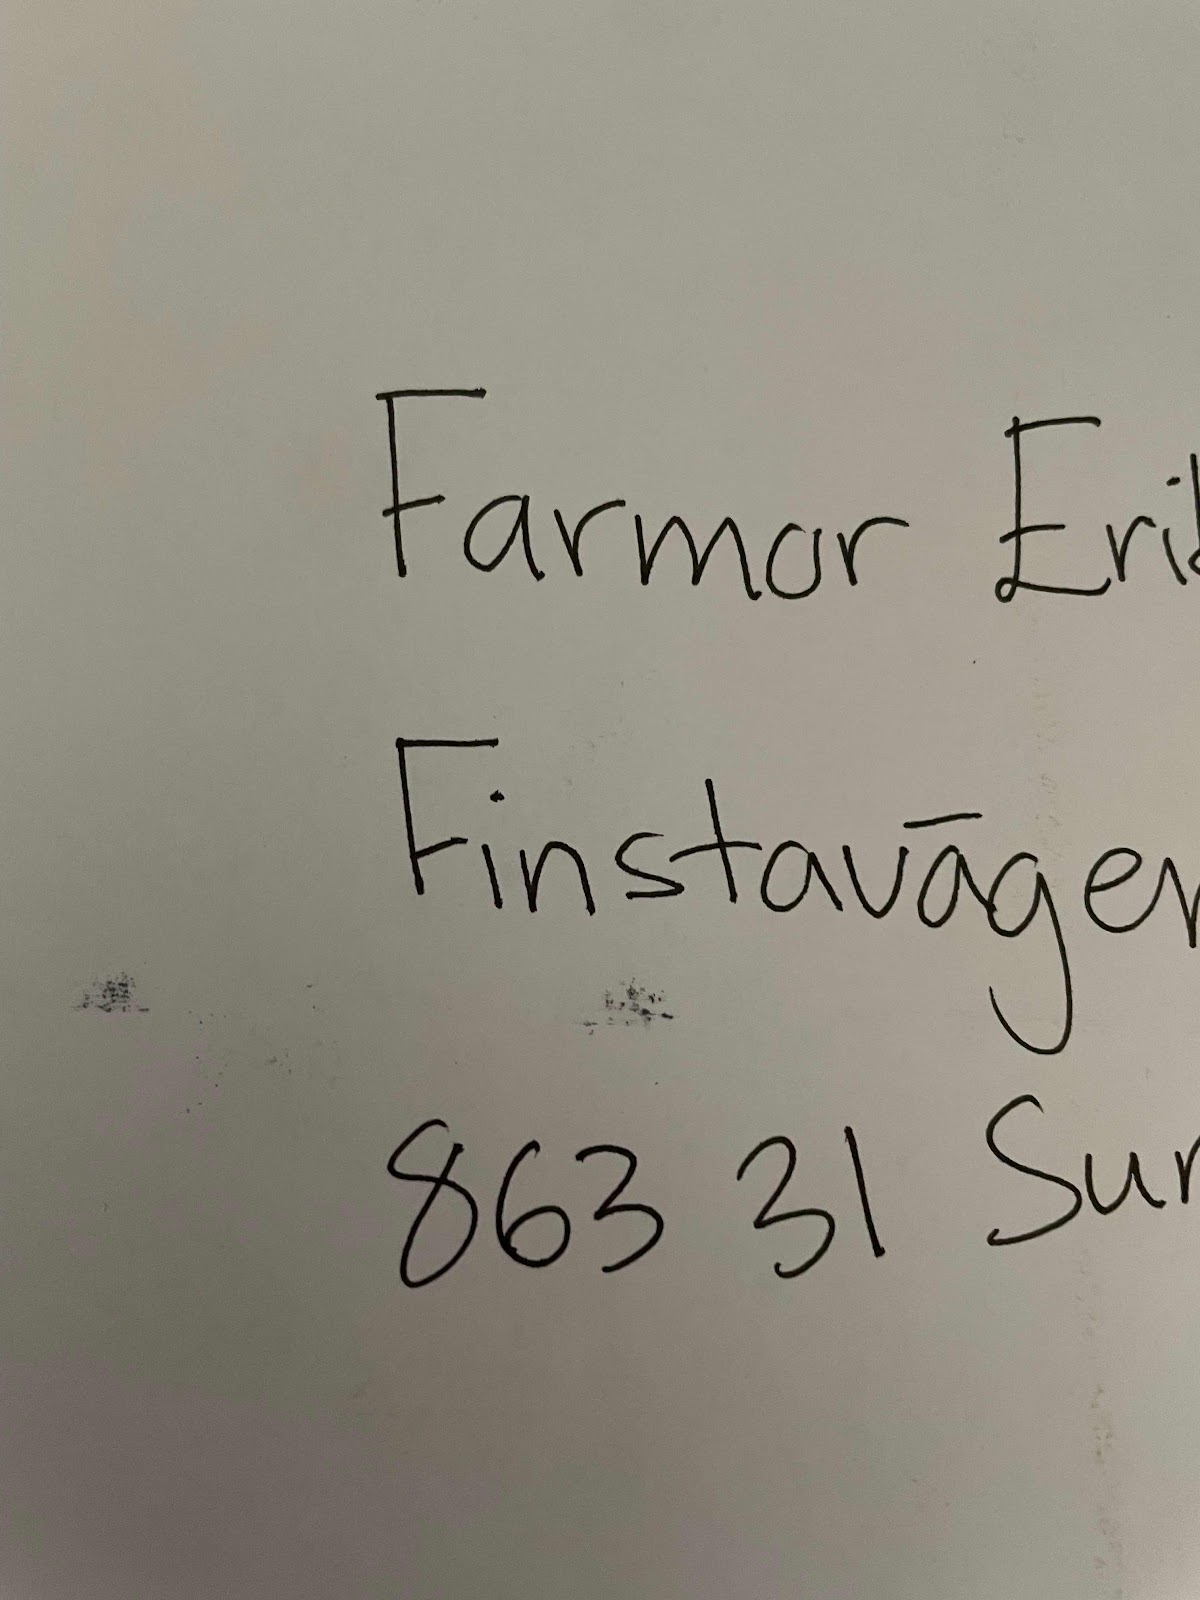 Farmor Erik
Finstavägen
863 31 Sun